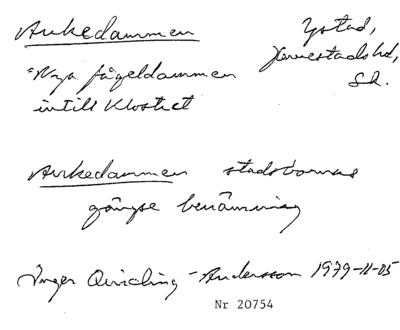 Ankedammen Ystad,
"Nya fågeldammen Herrestads hd,
intill Klostret Sk.
Ankedammen stadsbornas
gängse benämning
Inger Quiding-Andersson 1979-11-05
Nr 20754